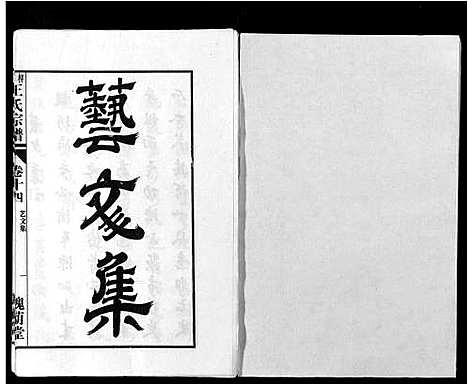 藝文集
王氏宗譜
卷十四
艺文集
一
槐蔭堂